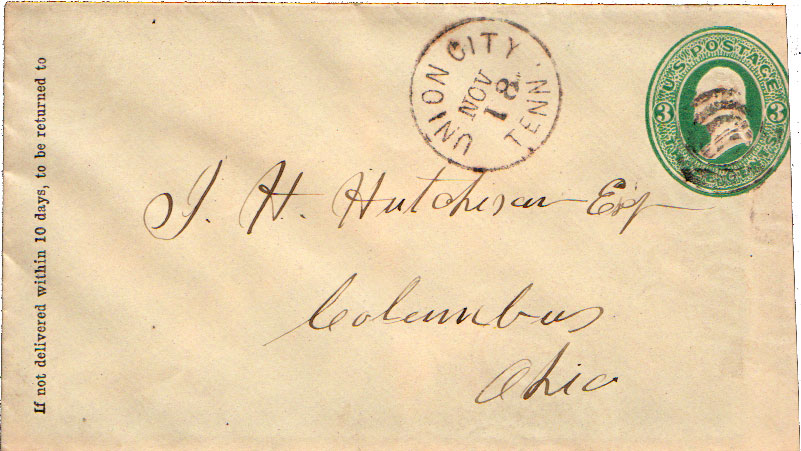 UNION CITY TENN.
NOV
18
U.S. POSTAGE
3 3
CENTS.
If not delivered within 10 days, to be returned to
J. H. Hutchison Esq
Columbus
Ohio